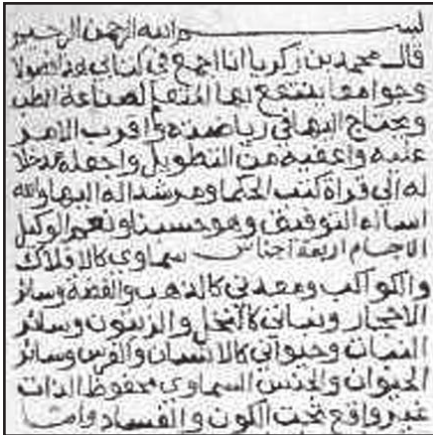 بسم الله الرحمن الرحيم
قال محمد بن زكريا انا اجمع في كتابي هذا فصولا
وجوامعا ينتفع بها المتعلم لصناعة الطب
ويحتاج اليها في رياضته واقرب الامر
عليه واعفيه من التطويل واجعله مدخلا
له الى قراة كتب الحكما ومرشدا له اليها والله
اساله التوفيق وهو حسبنا ونعم الوكيل
الاجسام اربعة اجناس سماوى كالافلاك
والكواكب ومعدنى كالذهب والفضة وسائر
الاحجار ونباتى كالنخل والزيتون وسائر
النبات وحيوانى كالانسان والفرس وسائر
الحيوان والجنس السماوى محفوظ الذات
غير واقع تحت الكون والفساد واما